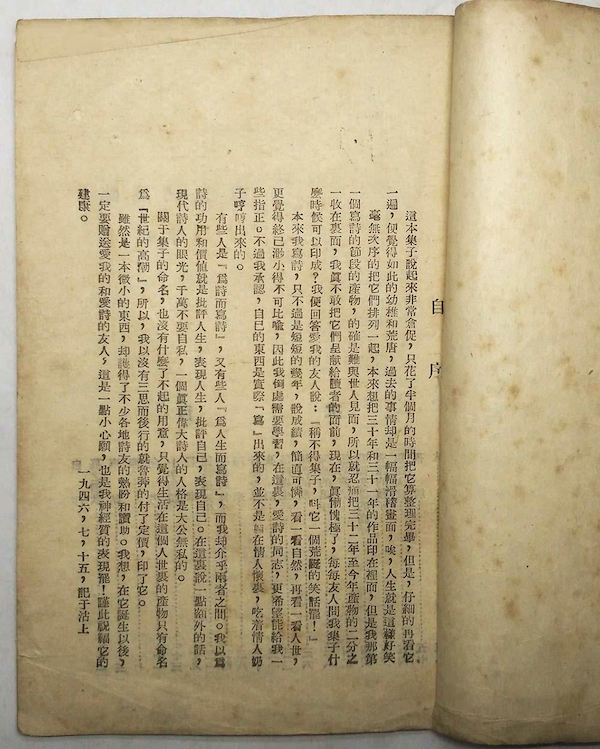 自序
這本集子說起來非常倉促，只花了半個月的時間把它算整理完畢，但是，仔細的再看它
一遍，便覺得如此的幼稚和荒唐，過去的事情却是一幅幅滑稽畫面，唉，人生就是這樣好笑
毫無次序的把它們排列一起，本來想把三十年和三十一年的作品印在裡面，但是我那第
一個寫詩的節段的產物，的確是難與世人見面，所以就忍痛把三十二年至今年產物的二分之
一收在裏面，我眞不敢把它們呈献給讀者的面前，現在，眞慚愧極了，每每友人問我集子什
麽時候可以印成？我便回答愛我的友人說：「稱不得集子，叫它一個荒謬的笑話罷！」
本來我寫詩，只不過是短短的幾年，說成績，簡直可憐，看一看自然，再看一看人世，
更覺得終已渺小得不可比喩，因此我倒處需要學習，在這裏，愛詩的同志，更希望能給我一
些指正。不過我承認，自已的東西是實際「寫」出來的，並不是歸在情人懷裏，吃着情人奶
子哼哼出來的。
有些人是「爲詩而寫詩」，又有些人「爲人生而寫詩」，而我却介乎兩者之間。我以爲
詩的功用和價値就是批評人生，表現人生，批評自己，表現自己。在這裏說一點額外的話，
現代詩人的眼光，千萬不要自私，一個眞正偉大詩人的人格是大公無私的。
關于集子的命名，也沒有什麽了不起的用意，只覺得生活在這個人世裏的產物只有命名
爲「世紀的高潮」，所以，我以沒有三思而後行的就魯莽的付了定價，印了它。
雖然是一本微小的東西，却謹得了不少各地詩友的熱盼和讚助。我想，在它誕生以後，
一定要贈送愛我的和愛詩的友人，這是一點小心願，也是我神經質的表現罷！謹此祝福它的
建康。
一九四六，七，十五，記于沽上